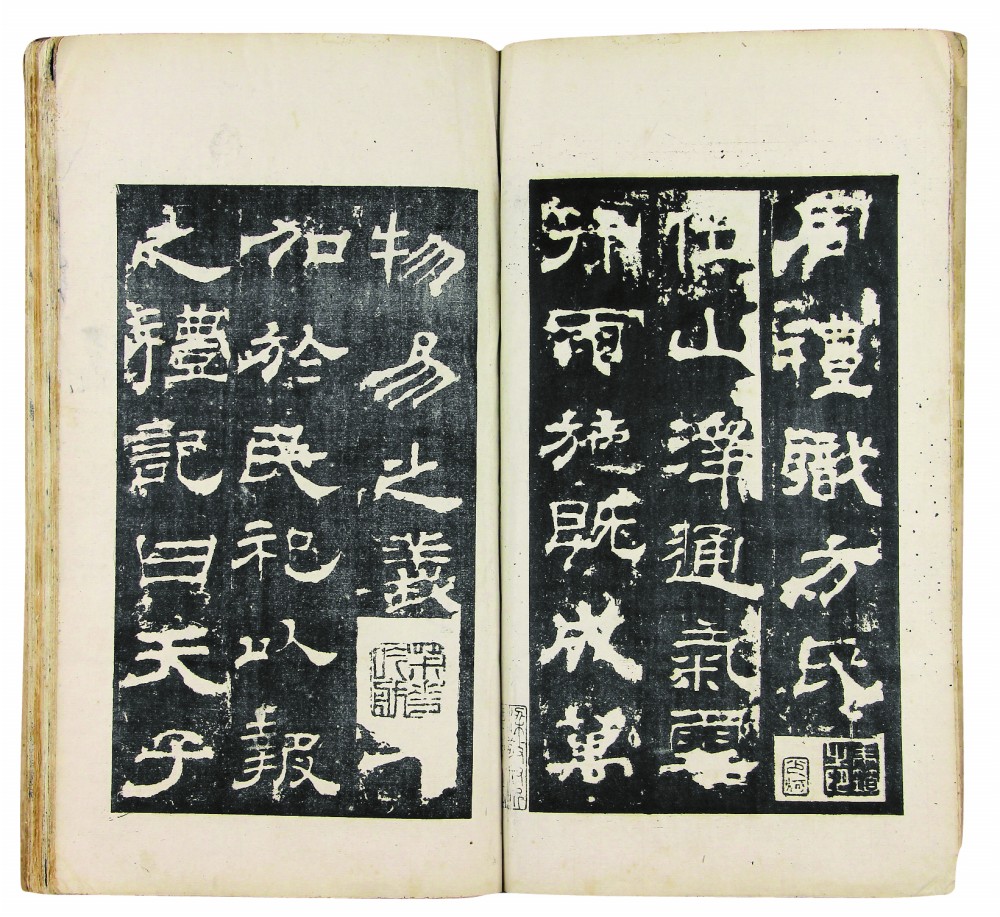 周禮職方氏
位山澤通氣雲
行雨施既成萬
物易之義
加於民祀以報
之禮記曰天子